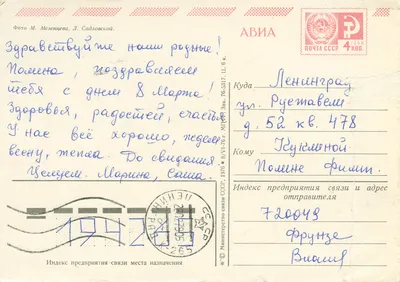 Фото М. Мезенцева, Л. Садловской
АВИА
ПОЧТА СССР
4 КОП
Здравствуйте наши родные!
Полина, поздравляем
тебя с днём 8 Марта!
Здоровья, радостей, счастья
У нас всё хорошо, ждем
весну, тепла. До свидания
Целуем. Марина, Саша.
Куда Ленинград
ул. Руставели
д. 52 кв. 478
Кому
Полине
Индекс предприятия связи и адрес
отправителя
720049
Фрунзе
Министерство связи СССР
ЛЕНИНГРАД
СССР
194283
Индекс предприятия связи места назначения